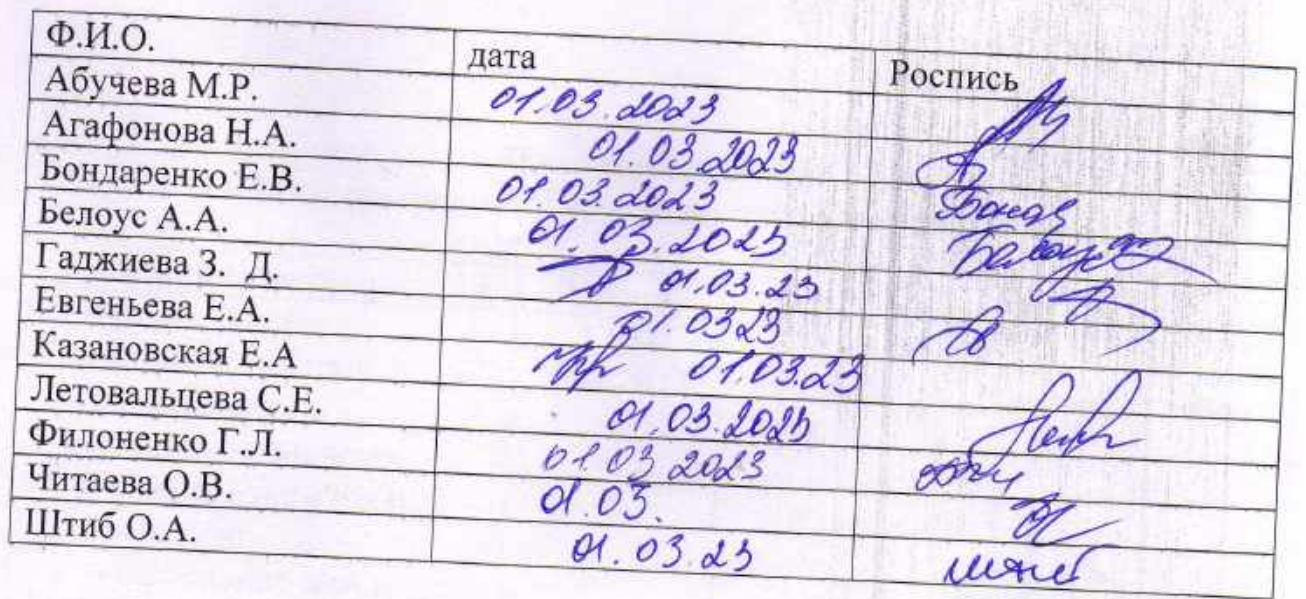 Ф.И.О. дата Роспись
Абучева М.Р. 01.03.2023
Агафонова Н.А. 01.03.2023
Бондаренко Е.В. 01.03.2023
Белоус А.А. 01.03.2023 Белоус
Гаджиева З. Д. 01.03.23
Евгеньева Е.А. 01.0323
Казановская Е.А 01.03.23
Летовальцева С.Е. 01.03.2023
Филоненко Г.Л. 01.03 2023
Читаева О.В. 01.03.
Штиб О.А. 01.03.23